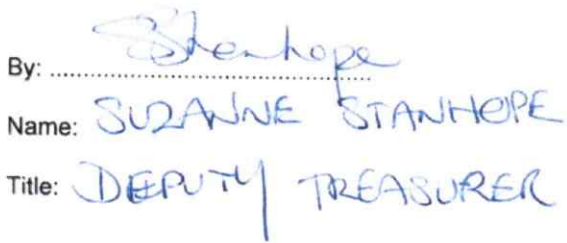 By: SStanhope
Name: SUZANNE STANHOPE
Title: DEPUTY TREASURER